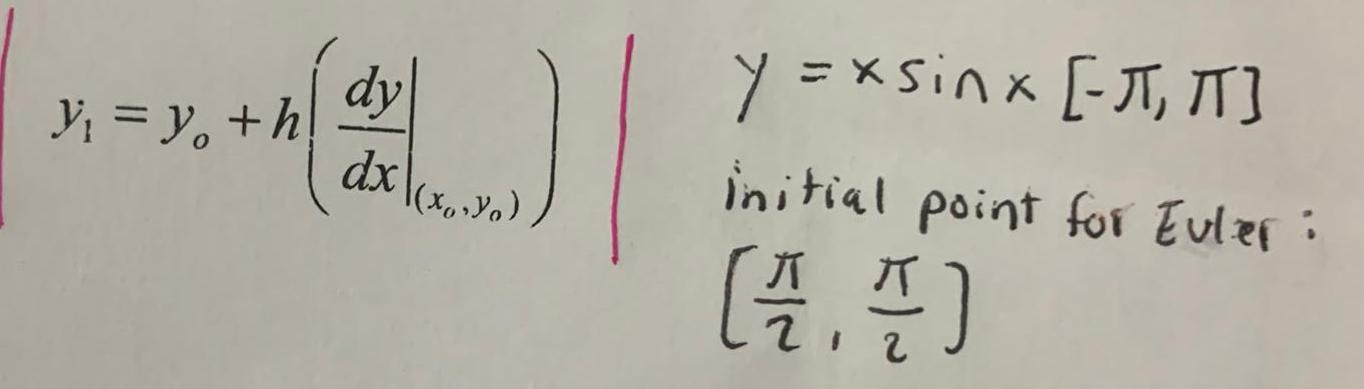 y₁ = yₒ + h( dy/dx |(xₒ, yₒ) )
y = x sin x [-π, π]
initial point for Euler :
[π/2, π/2]